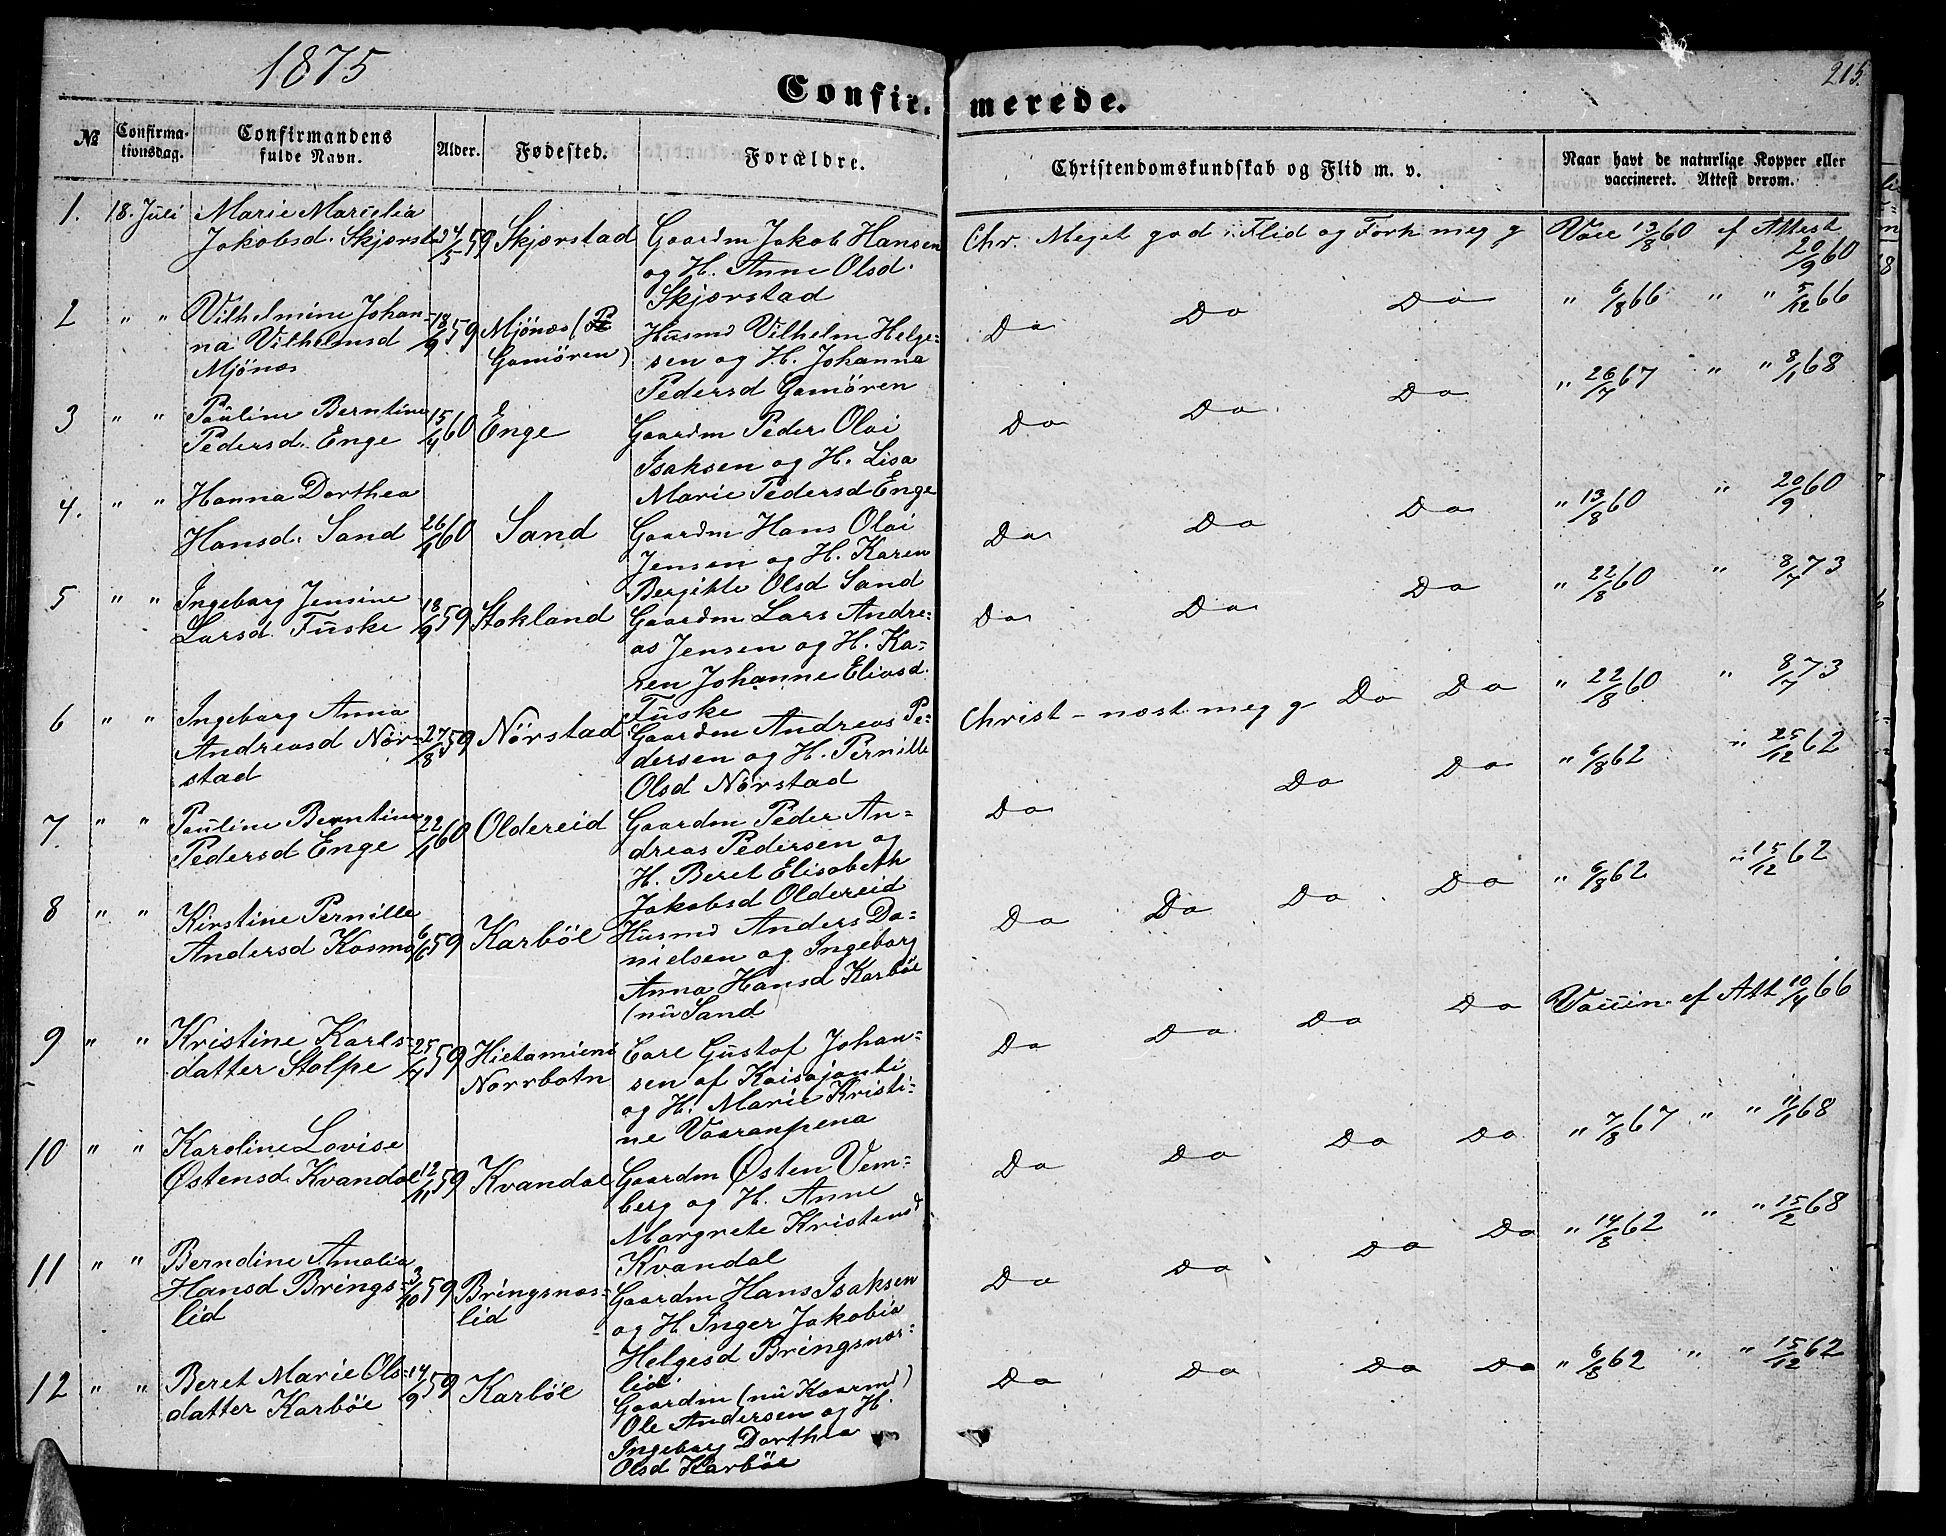 1875
215.
Confir. merede.
№
Confirma-
tionsdag.
Confirmandens
fulde Navn.
Alder.
Fødested.
Forældre.
Christendomskundskab og Flid m. v.
Naar havt de naturlige Kopper eller
vaccineret. Attest derom.
1. 18. Juli
Marie Marselia
Jakobsd. Skjærstd 24/5 59 Skjærstad
Gaardm Jakob Hansen
og H. Anne Olsd.
Skjærstad
Chr. Meget god. Flid og Forh meg g
Vacc 13/8 60 ef Attest
20/9 60
2 " "
Vilhelmine Johan-
na Vilhelmsd
Mjönæs
18/9 59
Mjönæs (
Gamören)
Husmd Vilhelm Helge-
sen og H. Johanna
Pedersd Gamören
Do Do Do
" 6/8 66 " " 5/12 66
3 " "
Pauline Berntine
Pedersd. Enge
15/4 60
Enge
Gaardm Peder Olai
Isaksen og H. Lisa
Marie Pedersd Enge
Do Do Do
" 26/7 67 " " 8/1 68
4. " "
Hanna Dorthea
Hansd. Sand
26/1 60
Sand
Gaardm Hans Olai
Jensen og H. Karen
Bergitte Olsd Sand
Do Do Do
" 13/8 60 " 20/9 60
5 " "
Ingeborg Jensine
Larsd. Fuske
18/9 59
Stokland
Gaardm Lars Andre-
as Jensen og H. Ka-
ren Johanne Eliasd.
Fuske
Do Do Do
" 22/8 60 " 8/7 73
6 " "
Ingeborg Anna
Andreasd Nör-
stad
27/8 59
Nörstad
Gaardm Andreas Pe-
dersen og H. Pernille
Olsd Nörstad
Christ - næst meg g Do Do
" 22/8 60 " 8/7 73
7. " "
Pauline Berntine
Pedersd Enge
22/1 60
Oldereid
Gaardm Peder An-
dreas Pedersen og
H. Beret Elisabeth
Jakobsd Oldereid
Do Do Do
" 6/8 62 " 25/12 62
8 " "
Kirstine Pernille
Andersd Kosmo
6/6 59
Karböe
Husmd Anders Da-
nielsen og Ingeborg
Anna Hansd Karböe
(nu Sand
Do Do Do Do
" 6/8 62 " 15/12 62
9 " "
Kristine Karls-
datter Stolpe
25/4 59
Hietamieni
Norrbotn
Carl Gustaf Johan-
sen af Kaisajonti
og H. Marie Kristi-
ne Vaaranpena
Do Do Do Do
Vaccin. ef Att 10/4 66
10 " "
Karoline Lovise
Østensd. Kvandal
12/11 59
Kvandal
Gaardm Østen Vem-
berg og H. Anne
Margrete Kristensd
Kvandal
Do Do Do Do
" 7/8 67 " " 11/1 68
11 " "
Berndine Amalia
Hansd Brings-
lid
3/10 59
Bringsnæs-
lid
Gaardm Hans Isaksen
og H Inger Jakobia
Helgesd Bringsnæs-
lid.
Do Do Do Do
" 14/8 62 " " 15/2 68
12 " "
Beret Marie Ols-
datter Karböe
14/9 59
Karböe
Gaardm (nu Kaarmd)
Ole Andersen og H.
Ingeborg Dorthea
Olsd Karböe
Do Do Do Do
" 6/8 62 " " 15/12 62